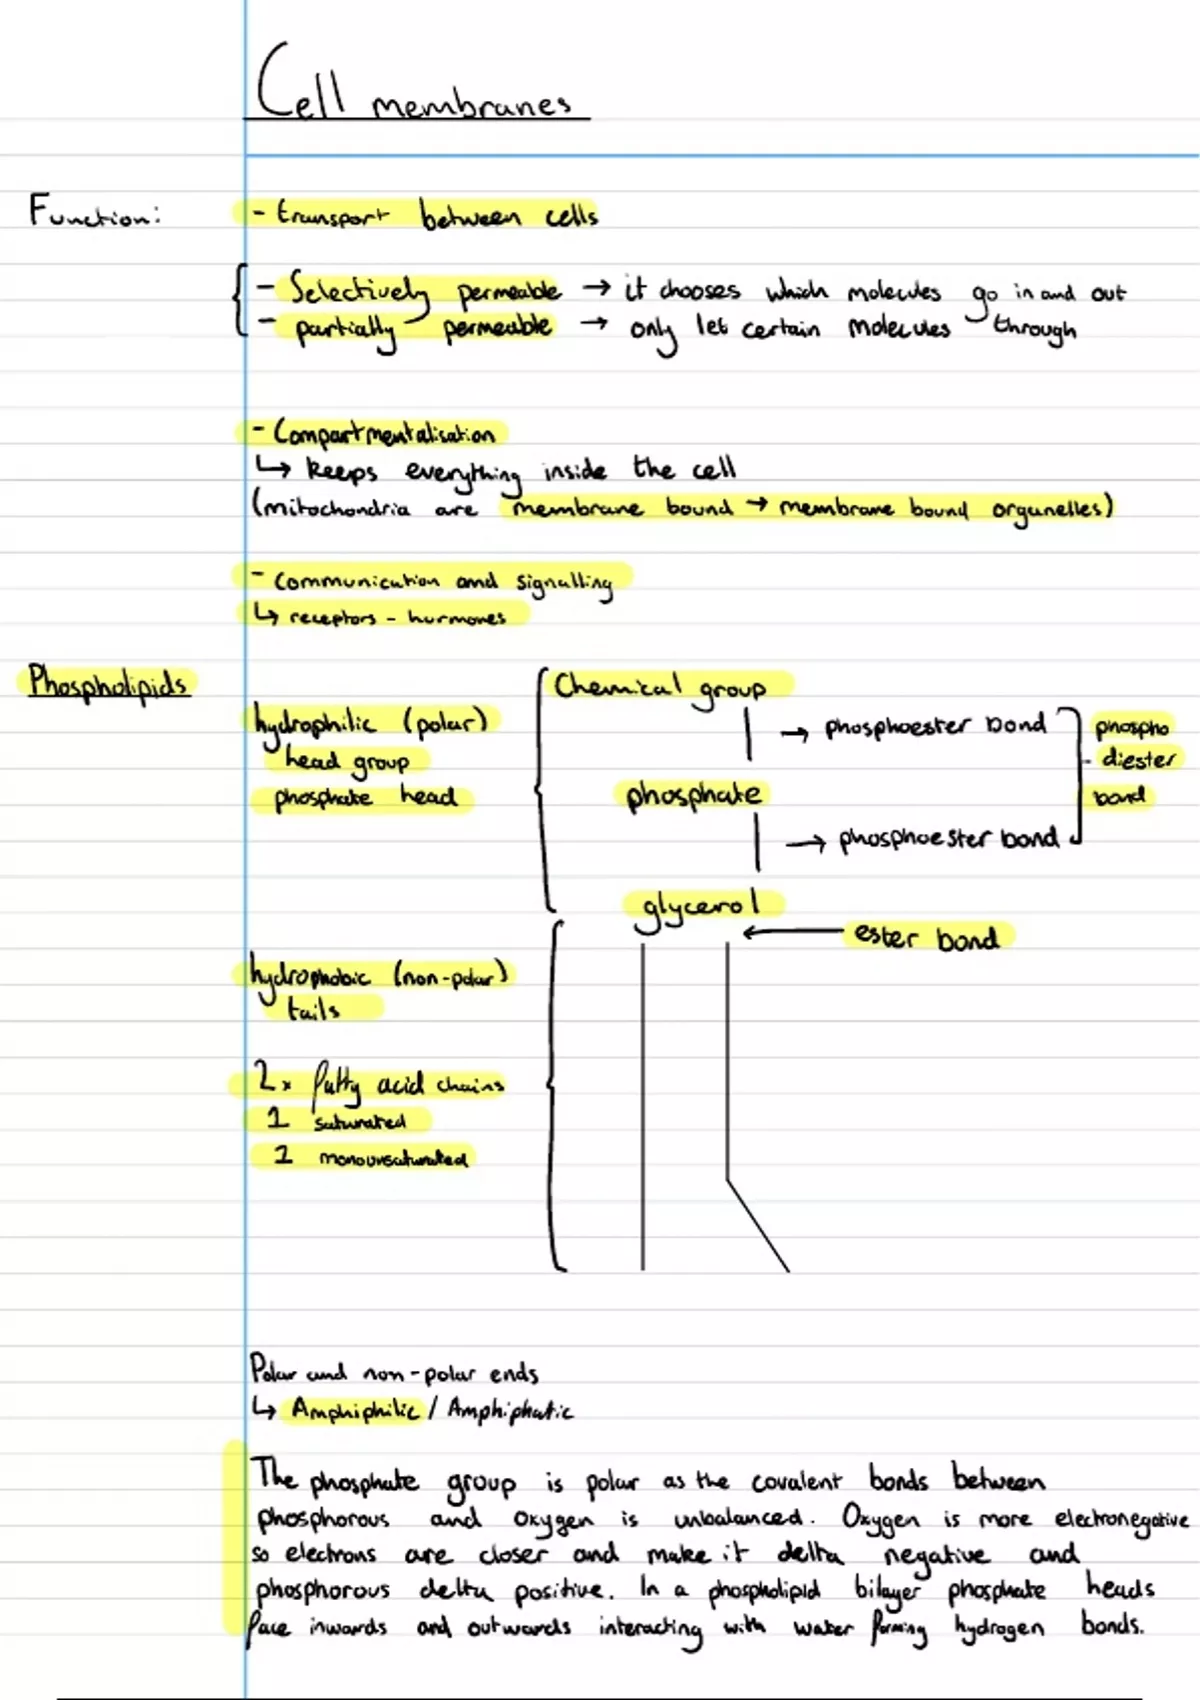 Cell membranes
Function:
- transport between cells
- Selectively permeable → it chooses which molecules go in and out
- partially permeable → only let certain molecules through
- Compartmentalisation
↳ keeps everything inside the cell
(mitochondria are membrane bound → membrane bound organelles)
- Communication and signalling
↳ receptors - hormones
Phospholipids
hydrophilic (polar)
head group
phosphate head
Chemical group
→ phosphoester bond
phosphate
→ phosphoester bond
phospho
- diester
bond
glycerol
← ester bond
hydrophobic (non-polar)
tails
2x fatty acid chains
1 saturated
1 monounsaturated
Polar and non-polar ends
↳ Amphiphilic / Amphiphatic
The phosphate group is polar as the covalent bonds between
phosphorous and oxygen is unbalanced. Oxygen is more electronegative
so electrons are closer and make it delta negative and
phosphorous delta positive. In a phospholipid bilayer phosphate heads
face inwards and outwards interacting with water forming hydrogen bonds.